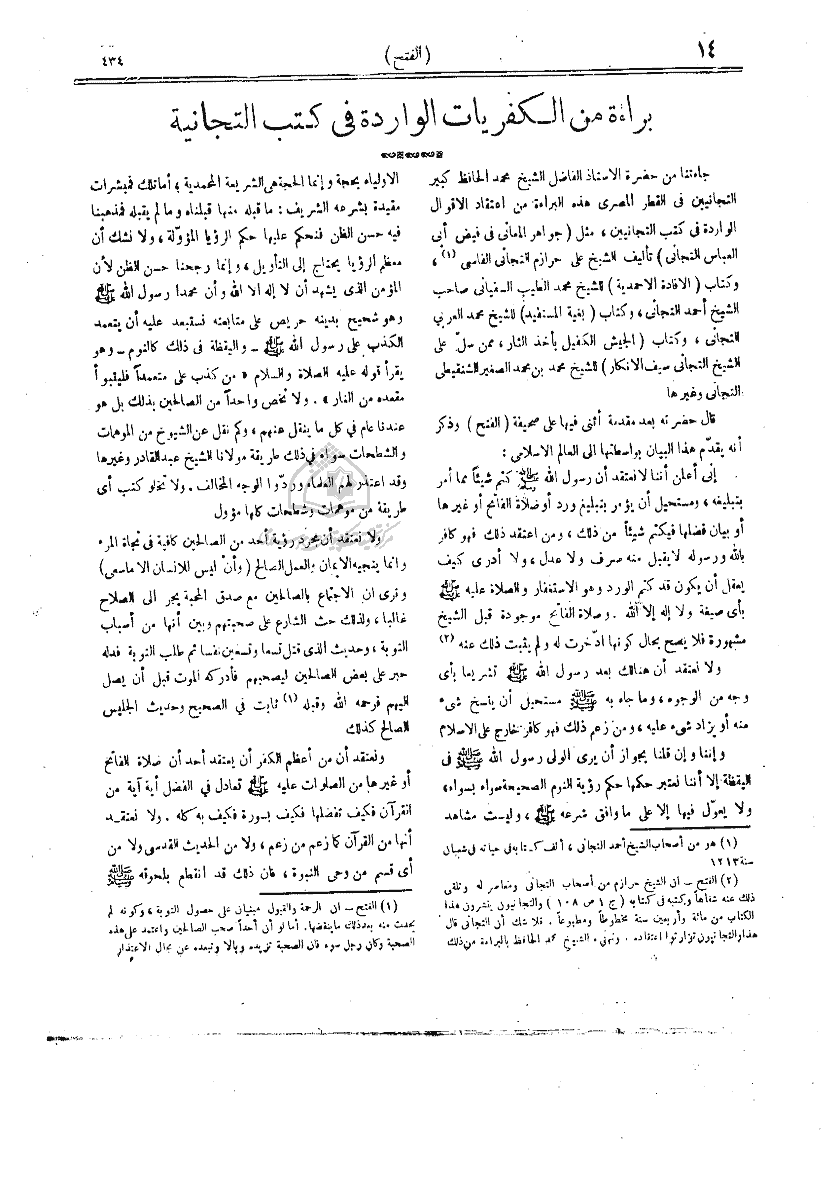 ١٤
(الفتح)
٤٣٤
براءة من الكفريات الواردة فى كتب التجانية
جاءتنا من حضرة الاستاذ الفاضل الشيخ محمد الحافظ كبير
التجانيين فى القطر المصرى هذه البراءة من اعتقاد الاقوال
الواردة فى كتب التجانيين، مثل (جواهر المعانى فى فيض أبى
العباس التجانى) تأليف الشيخ على حرازم التجانى الفاسى (١)،
وكتاب (الافادة الاحمدية) للشيخ محمد الطيب السفيانى صاحب
الشيخ أحمد التجانى، وكتاب (بغية المستفيد) للشيخ محمد العربي
التجانى، وكتاب (الجيش الكفيل بأخذ الثار، ممن سلّ على
الشيخ التجانى سيف الانكار) للشيخ محمد بن محمد الصغير الشنقيطى
التجانى وغيرها
قال حضرته بعد مقدمة أثنى فيها على صحيفة (الفتح) وذكر
أنه يقدّم هذا البيان بواسطتها الى العالم الاسلامى:
إنى أعلن أننا لا نعتقد أن رسول الله ﷺ كتم شيئاً مما أمر
بتبليغه، ومستحيل أن يؤمر بتبليغ ورد أو صلاة الفاتح أو غيرها
أو بيان فضلها فيكتم شيئاً من ذلك، ومن اعتقد ذلك فهو كافر
بالله ورسوله لا يقبل منه صرف ولا عدل، ولا أدرى كيف
يعقل أن يكون قد كتم الورد وهو الاستغفار والصلاة عليه ﷺ
بأى صيغة ولا إله إلا الله. وصلاة الفاتح موجودة قبل الشيخ
مشهورة فلا يصح بحال كونها ادّخرت له ولم يثبت ذلك عنه (٢)
ولا نعتقد أن هنالك بعد رسول الله ﷺ تشريعا بأى
وجه من الوجوه، وما جاء به ﷺ مستحيل أن ينسخ شىء
منه أو يزاد شىء عليه، ومن زعم ذلك فهو كافر خارج على الاسلام
وإننا وإن قلنا بجواز أن يرى الولى رسول الله ﷺ فى
اليقظة إلا أننا نعتبر حكمها حكم رؤية النوم الصحيحة سواء بسواء،
ولا يعوّل فيها إلا على ما وافق شرعه ﷺ، وليست مشاهد
(١) هو من أصحاب الشيخ أحمد التجانى، ألف كتابه فى حياته فى شعبان
سنة ١٢١٣
(٢) الفتح — ان الشيخ حرازم من أصحاب التجانى ومعاصر له وتلقى
ذلك عنه شفاها وكتبه فى كتابه (ج ١ ص ١٠٨) والتجانيون ينشرون هذا
الكتاب من مائة وأربعين سنة مخطوطاً ومطبوعاً. فلا شك أن التجانى قال
هذا والتجانيون توارثوا اعتقاده. ونهنىء الشيخ محمد الحافظ بالبراءة من ذلك
الاولياء بحجة وإنما الحجة هى الشريعة المحمدية، أما تلك فمبشرات
مقيدة بشرعه الشريف: ما قبله منها قبلناه وما لم يقبله فمذهبنا
فيه حسن الظن فنحكم عليها حكم الرؤيا المؤوّلة، ولا نشك أن
معظم الرؤيا يحتاج إلى التأويل، وإنما رجحنا حسن الظن لأن
المؤمن الذى يشهد أن لا إله الا الله وأن محمدا رسول الله ﷺ
وهو شحيح بدينه حريص على متابعته نستبعد عليه أن يتعمد
الكذب على رسول الله ﷺ — واليقظة فى ذلك كالنوم — وهو
يقرأ قوله عليه الصلاة والسلام «من كذب على متعمداً فليتبوأ
مقعده من النار». ولا نخص واحداً من الصالحين بذلك بل هو
عندنا عام فى كل ما ينقل عنهم، وكم نقل عن الشيوخ من الموهمات
والشطحات سواء فى ذلك طريقة مولانا الشيخ عبد القادر وغيرها
وقد اعتذر لهم العلماء وردّوا الوجه المخالف. ولا تخلو كتب أى
طريقة من موهمات وشطحات كلها مؤول
ولا نعتقد أن مجرد رؤية أحد من الصالحين كافية فى نجاة المرء
وإنما ينجيه الايمان بالعمل الصالح (وأن ليس للانسان الا ما سعى)
ونرى ان الاجتماع بالصالحين مع صدق المحبة يجر الى الصلاح
غالبا، ولذلك حث الشارع على صحبتهم وبين أنها من أسباب
التوبة، وحديث الذى قتل تسعا وتسعين نفسا ثم طلب التوبة فدله
حبر على بعض الصالحين ليصحبهم فأدركه الموت قبل أن يصل
اليهم فرحمه الله وقبله (١) ثابت فى الصحيح وحديث الجليس
الصالح كذلك
ونعتقد أن من أعظم الكفر أن يعتقد أحد أن صلاة الفاتح
أو غيرها من الصلوات عليه ﷺ تعادل في الفضل أية آية من
القرآن فكيف تفضلها فكيف بسورة فكيف به كله. ولا نعتقد
أنها من القرآن كما زعم من زعم، ولا من الحديث القدسى ولا من
أى قسم من وحى النبوة، فان ذلك قد انقطع بلحوقه ﷺ
(١) الفتح — ان الرحمة والقبول مبنيان على حصول التوبة، وكونه لم
يحدث منه بعد ذلك ما ينقضها. أما لو أن أحداً صحب الصالحين واعتمد على هذه
الصحبة وكان رجل سوء فان الصحبة تزيده وبالا وتبعده عن مجال الاعتذار